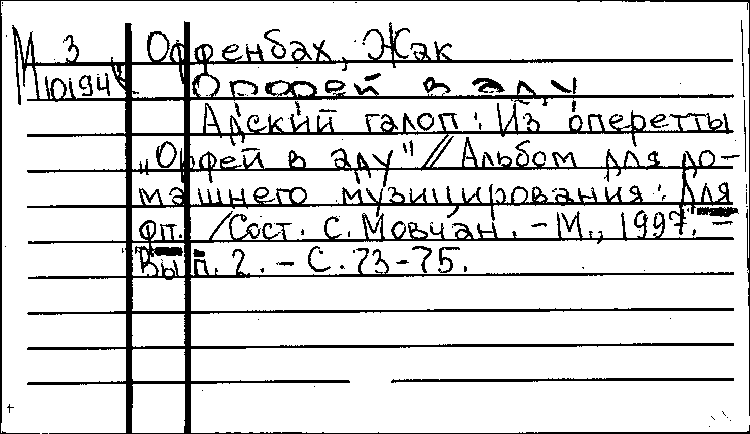 М 3 Оффенбах, Жак
10194 Орфей в аду
Адский галоп: Из оперетты
„Орфей в аду" // Альбом для до-
машнего музицирования: Для
фп. / Сост. С. Мовчан. – М., 1997. –
Вып. 2. – С. 73-75.